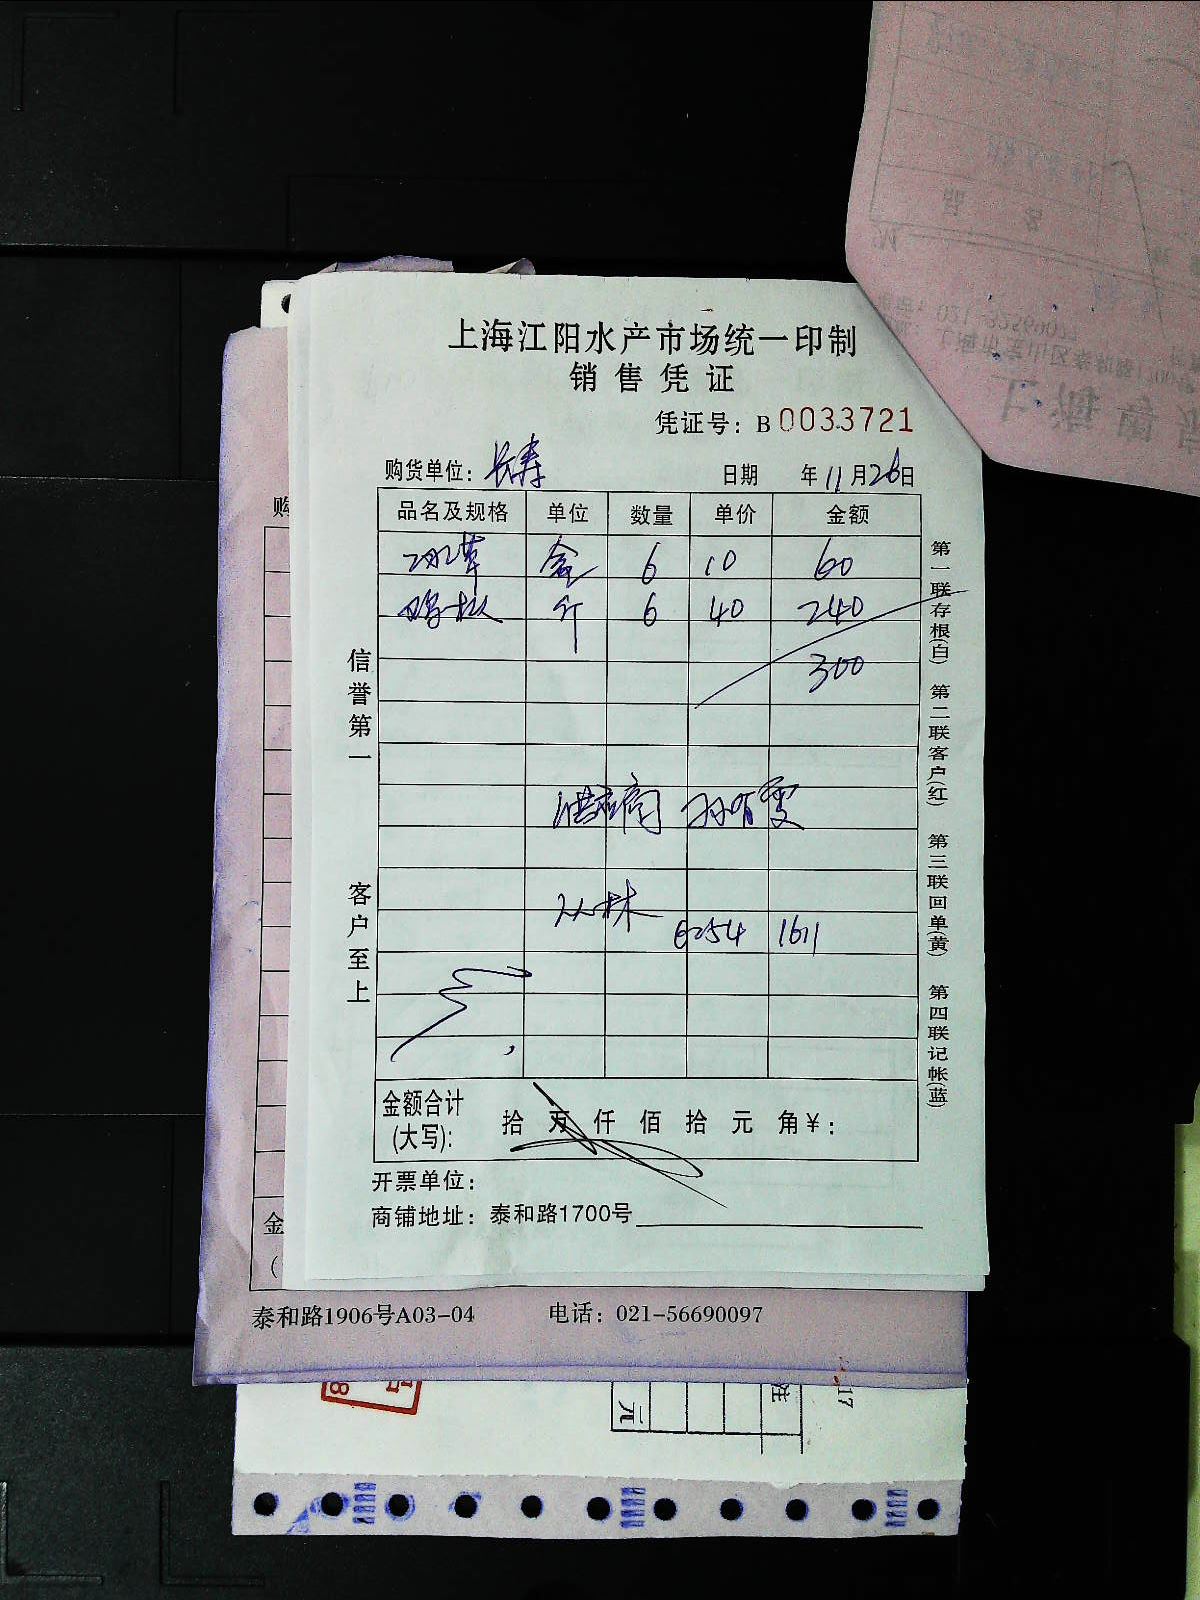 上海江阳水产市场统一印制
销售凭证
凭证号：B 0033721
购货单位：长寿 日期 年 11 月 26 日
品名及规格 单位 数量 单价 金额
冰草 盒 6 10 60
鸡枞 斤 6 40 240
300
6254 1611
金额合计(大写)： 拾 万 仟 佰 拾 元 角 ¥：
开票单位：
商铺地址：泰和路1700号
信誉第一 客户至上
第一联存根(白) 第二联客户(红) 第三联回单(黄) 第四联记帐(蓝)
购
金
泰和路1906号A03-04 电话：021-56690097
元
17